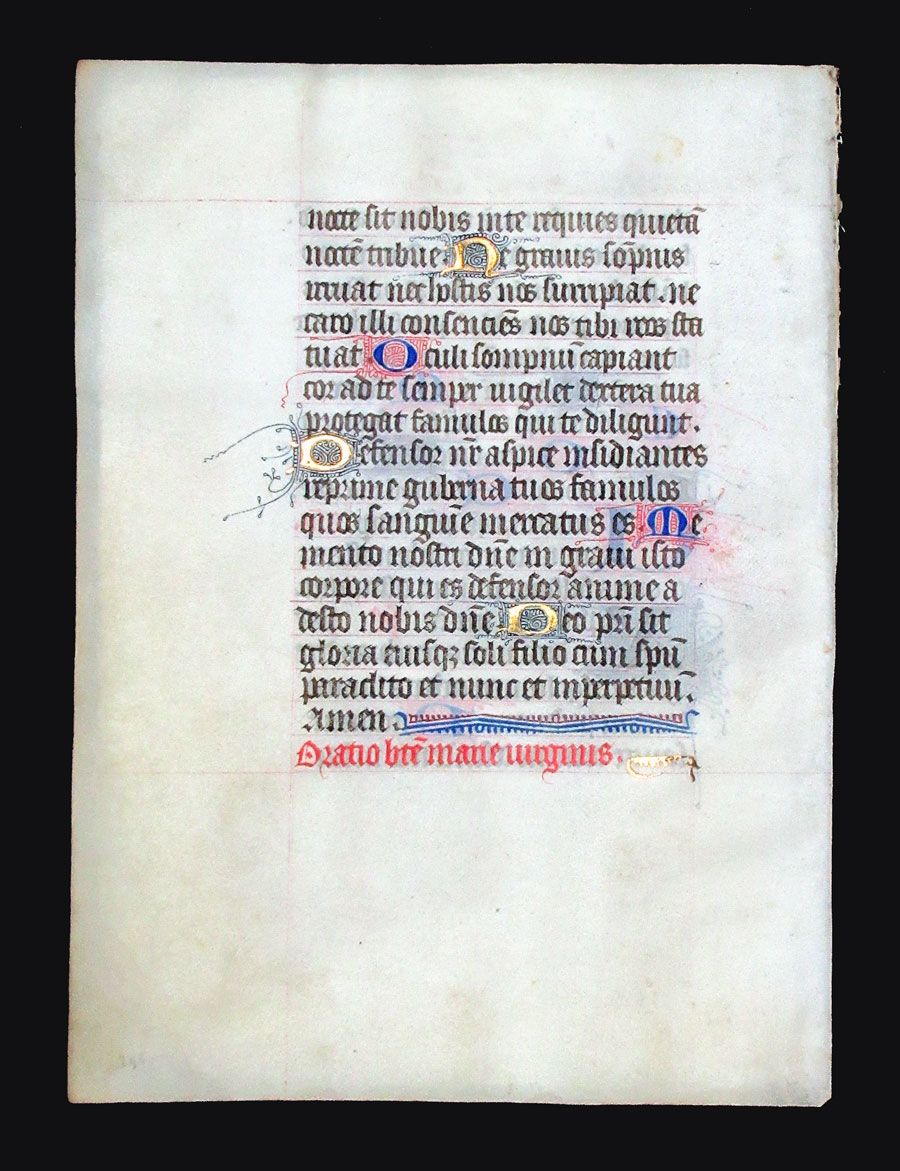 nocte sit nobis in te requies quietā
noctē tribue Ne grauis sōpnus
irruat nec hostis nos surripiat . ne
caro illi consenciēs nos tibi reos sta
tuat Oculi sompnū capiant
cor ad te semper uigilet dextera tua
protegat famulos qui te diligunt .
Defensor nr̄ aspice insidiantes
reprime guberna tuos famulos
quos sanguīe mercatus es Me
mento nostri dn̄e in graui isto
corpore qui es defensor anime a
desto nobis dn̄e Deo pr̄i sit
gloria eiusqꝫ soli filio cum spū
paraclito et nunc et in perpetuū .
Amen
Oratio btē marie uirginis .